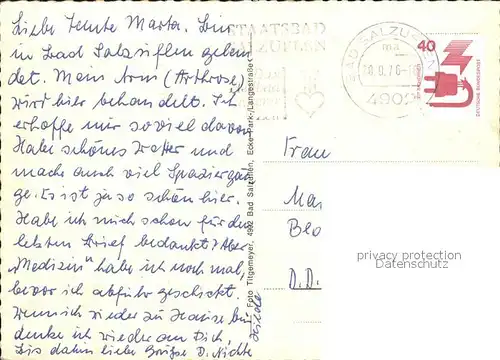 Liebe Tante Marta. Bin
in Bad Salzuflen gelan
det. Mein Arm (Arthrose)
wird hier behandelt. Ich
erhoffe mir soviel davon
Habe schönes Wetter und
mache auch viel Spaziergän
ge. Es ist ja so schön hier.
Habe ich mich schon für den
letzten Brief bedankt? Aber
„Medizin" habe ich noch mal,
bevor ich abfuhr geschickt.
Wenn ich wieder zu Hause bin
denke ich wieder an Dich,
Bis dahin liebe Grüße D. Nichte
Foto Tilgemeyer, 4902 Bad Salzuflen, Ecke Park-/Langestraße
STAATSBAD
SALZUFLEN
BAD SALZUFLEN
ma
4902
40
DEUTSCHE BUNDESPOST
Frau
Mar
Beo
D.D.
privacy protection
Datenschutz